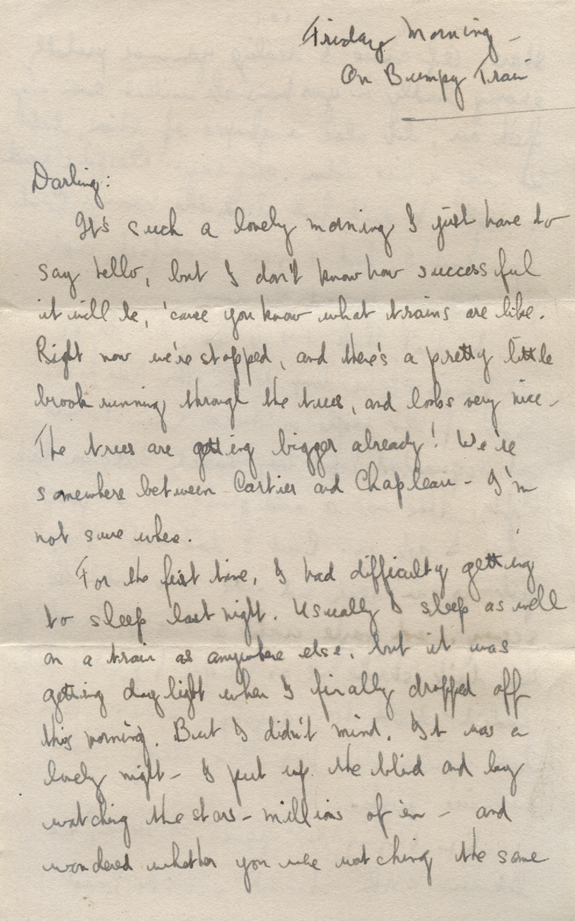 Friday Morning -
On Bumpy Train
Darling:
It's such a lovely morning I just have to
say hello, but I don't know how successful
it will be, 'cause you know what trains are like.
Right now we're stopped, and there's a pretty little
brook running through the trees, and looks very nice -
The trees are getting bigger already! We're
somewhere between Cartier and Chapleau - I'm
not sure where.
For the first time, I had difficulty getting
to sleep last night. Usually I sleep as well
on a train as anywhere else, but it was
getting daylight when I finally dropped off
this morning. But I didn't mind. It was a
lovely night - I put up the blind and lay
watching the stars - millions of 'em - and
wondered whether you were watching the same